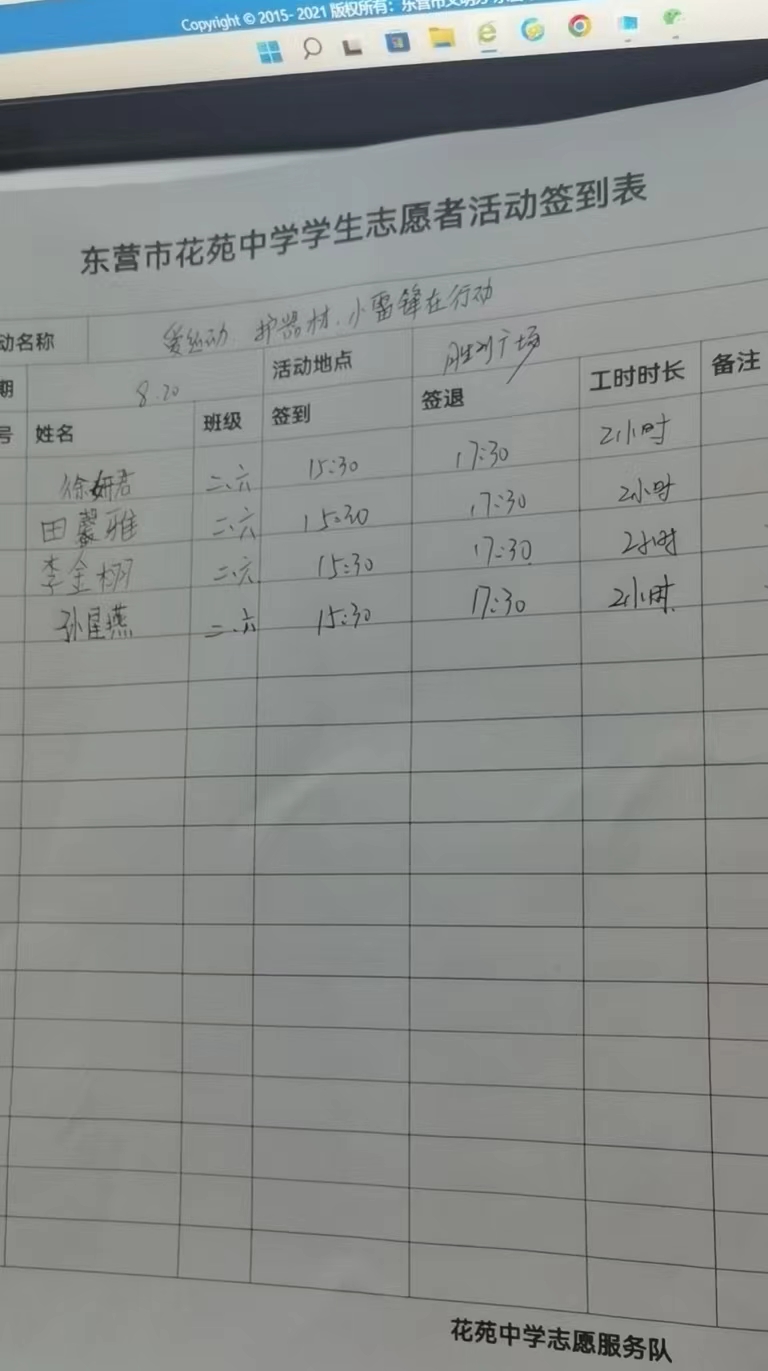 Copyright © 2015- 2021 版权所有：东营市文明办
东营市花苑中学学生志愿者活动签到表
动名称 爱运动、护器材、小雷锋在行动
期 8.20 活动地点 胜利广场
号 姓名 班级 签到 签退 工时时长 备注
徐妍君 二、六 15:30 17:30 2小时
田馨雅 二、六 15:30 17:30 2小时
李金栩 二、六 15:30 17:30 2小时
孙星燕 二、六 15:30 17:30 2小时
花苑中学志愿服务队